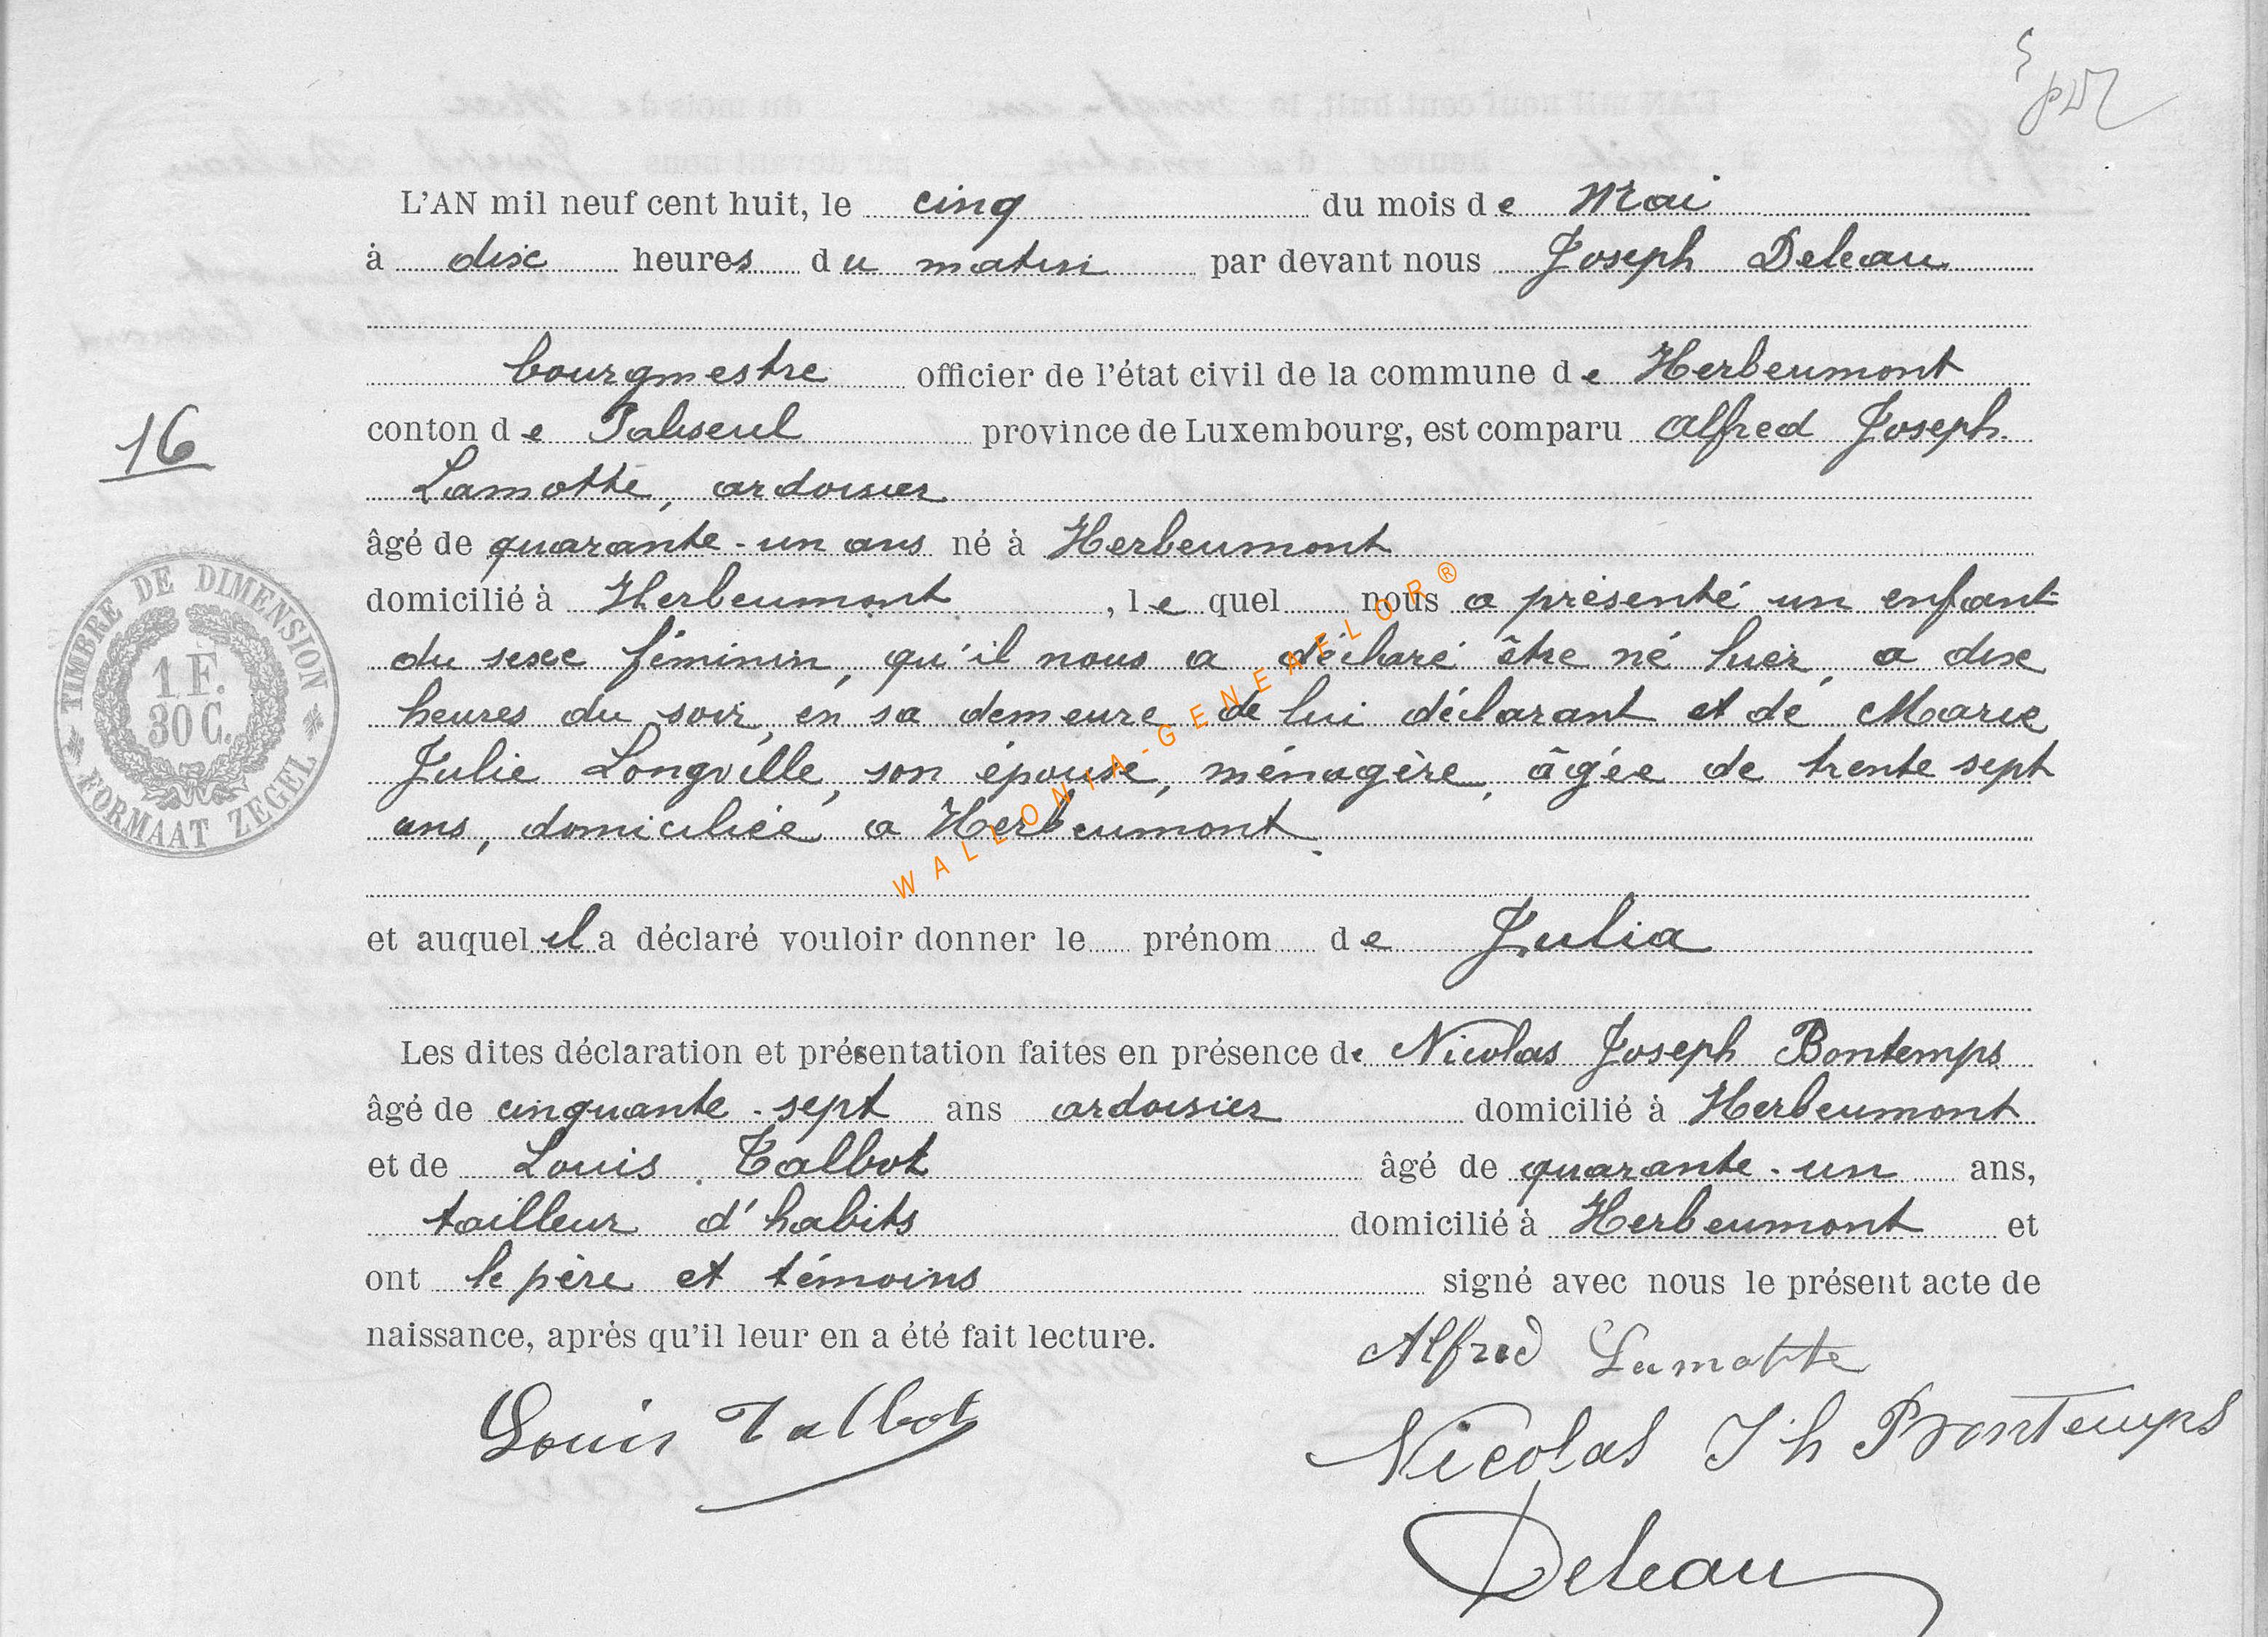 L'AN mil neuf cent huit, le cinq du mois de Mai
à dix heures du matin par devant nous Joseph Deleau
bourgmestre officier de l'état civil de la commune de Herbeumont
conton de Paliseul province de Luxembourg, est comparu Alfred Joseph
16
Lamotte, ardoisier
âgé de quarante-un ans né à Herbeumont
domicilié à Herbeumont, lequel nous a présenté un enfant
du sexe féminin, qu'il nous a déclaré être né hier, a dix
heures du soir, en sa demeure, de lui déclarant et de Marie
Julie Longville, son épouse, ménagère, âgée de trente sept
ans, domiciliée a Herbeumont.
TIMBRE DE DIMENSION
1 F.
30 C.
FORMAAT ZEGEL
WALLONIA-GENEAFLOR®
et auquel il a déclaré vouloir donner le prénom de Julia
Les dites déclaration et présentation faites en présence de Nicolas Joseph Bontemps
âgé de cinquante-sept ans ardoisier domicilié à Herbeumont
et de Louis Talbot âgé de quarante-un ans,
tailleur d'habits domicilié à Herbeumont et
ont le père et témoins signé avec nous le présent acte de
naissance, après qu'il leur en a été fait lecture.
Alfred Lamotte
Louis Talbot
Nicolas Jh Bontemps
Deleau